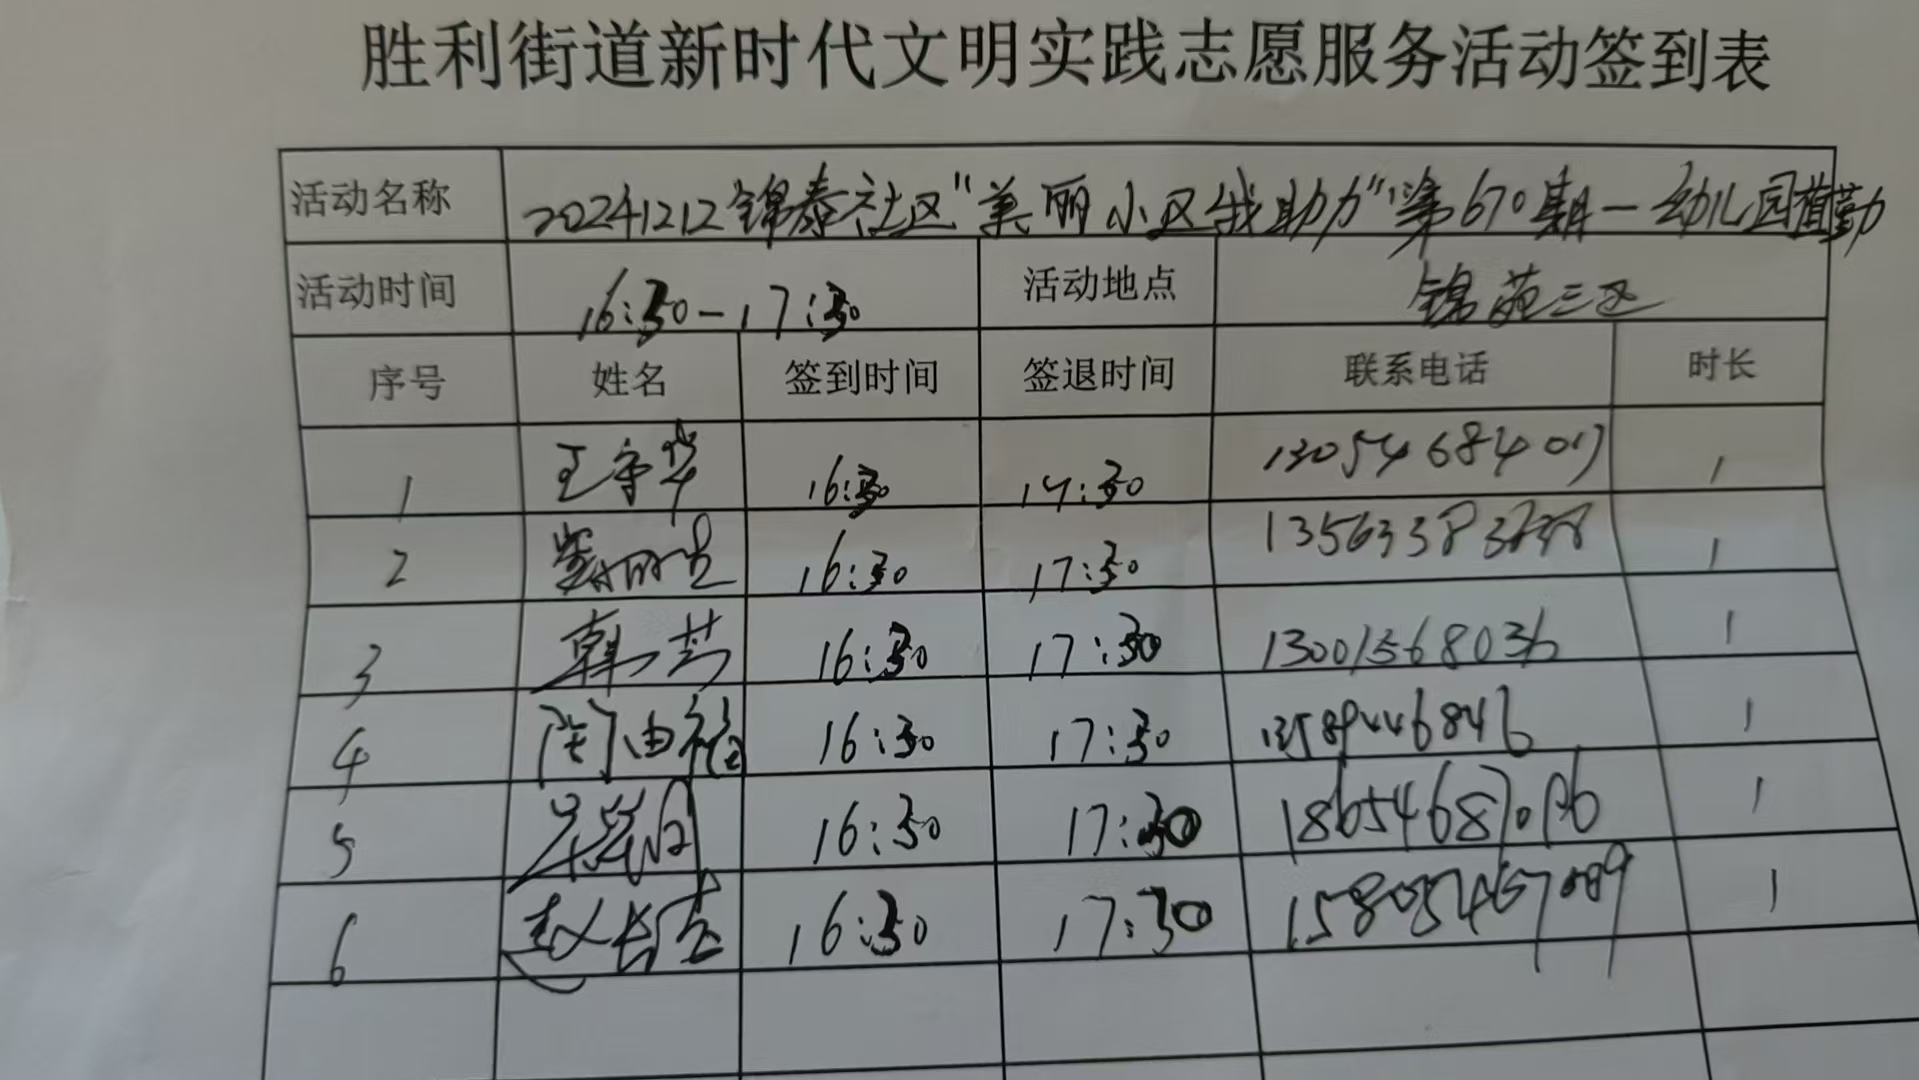 胜利街道新时代文明实践志愿服务活动签到表
活动名称 20241212锦泰社区"美丽小区我助力"第670期—幼儿园值勤
活动时间 16:30-17:30 活动地点 锦苑三区
序号 姓名 签到时间 签退时间 联系电话 时长
1 王守华 16:30 17:30 13054684017 1
2 16:30 17:30 1
3 韩芳 16:30 17:30 13001568036 1
4 16:30 17:30 13589446846 1
5 16:30 17:30 1
6 赵长吉 16:30 17:30 1